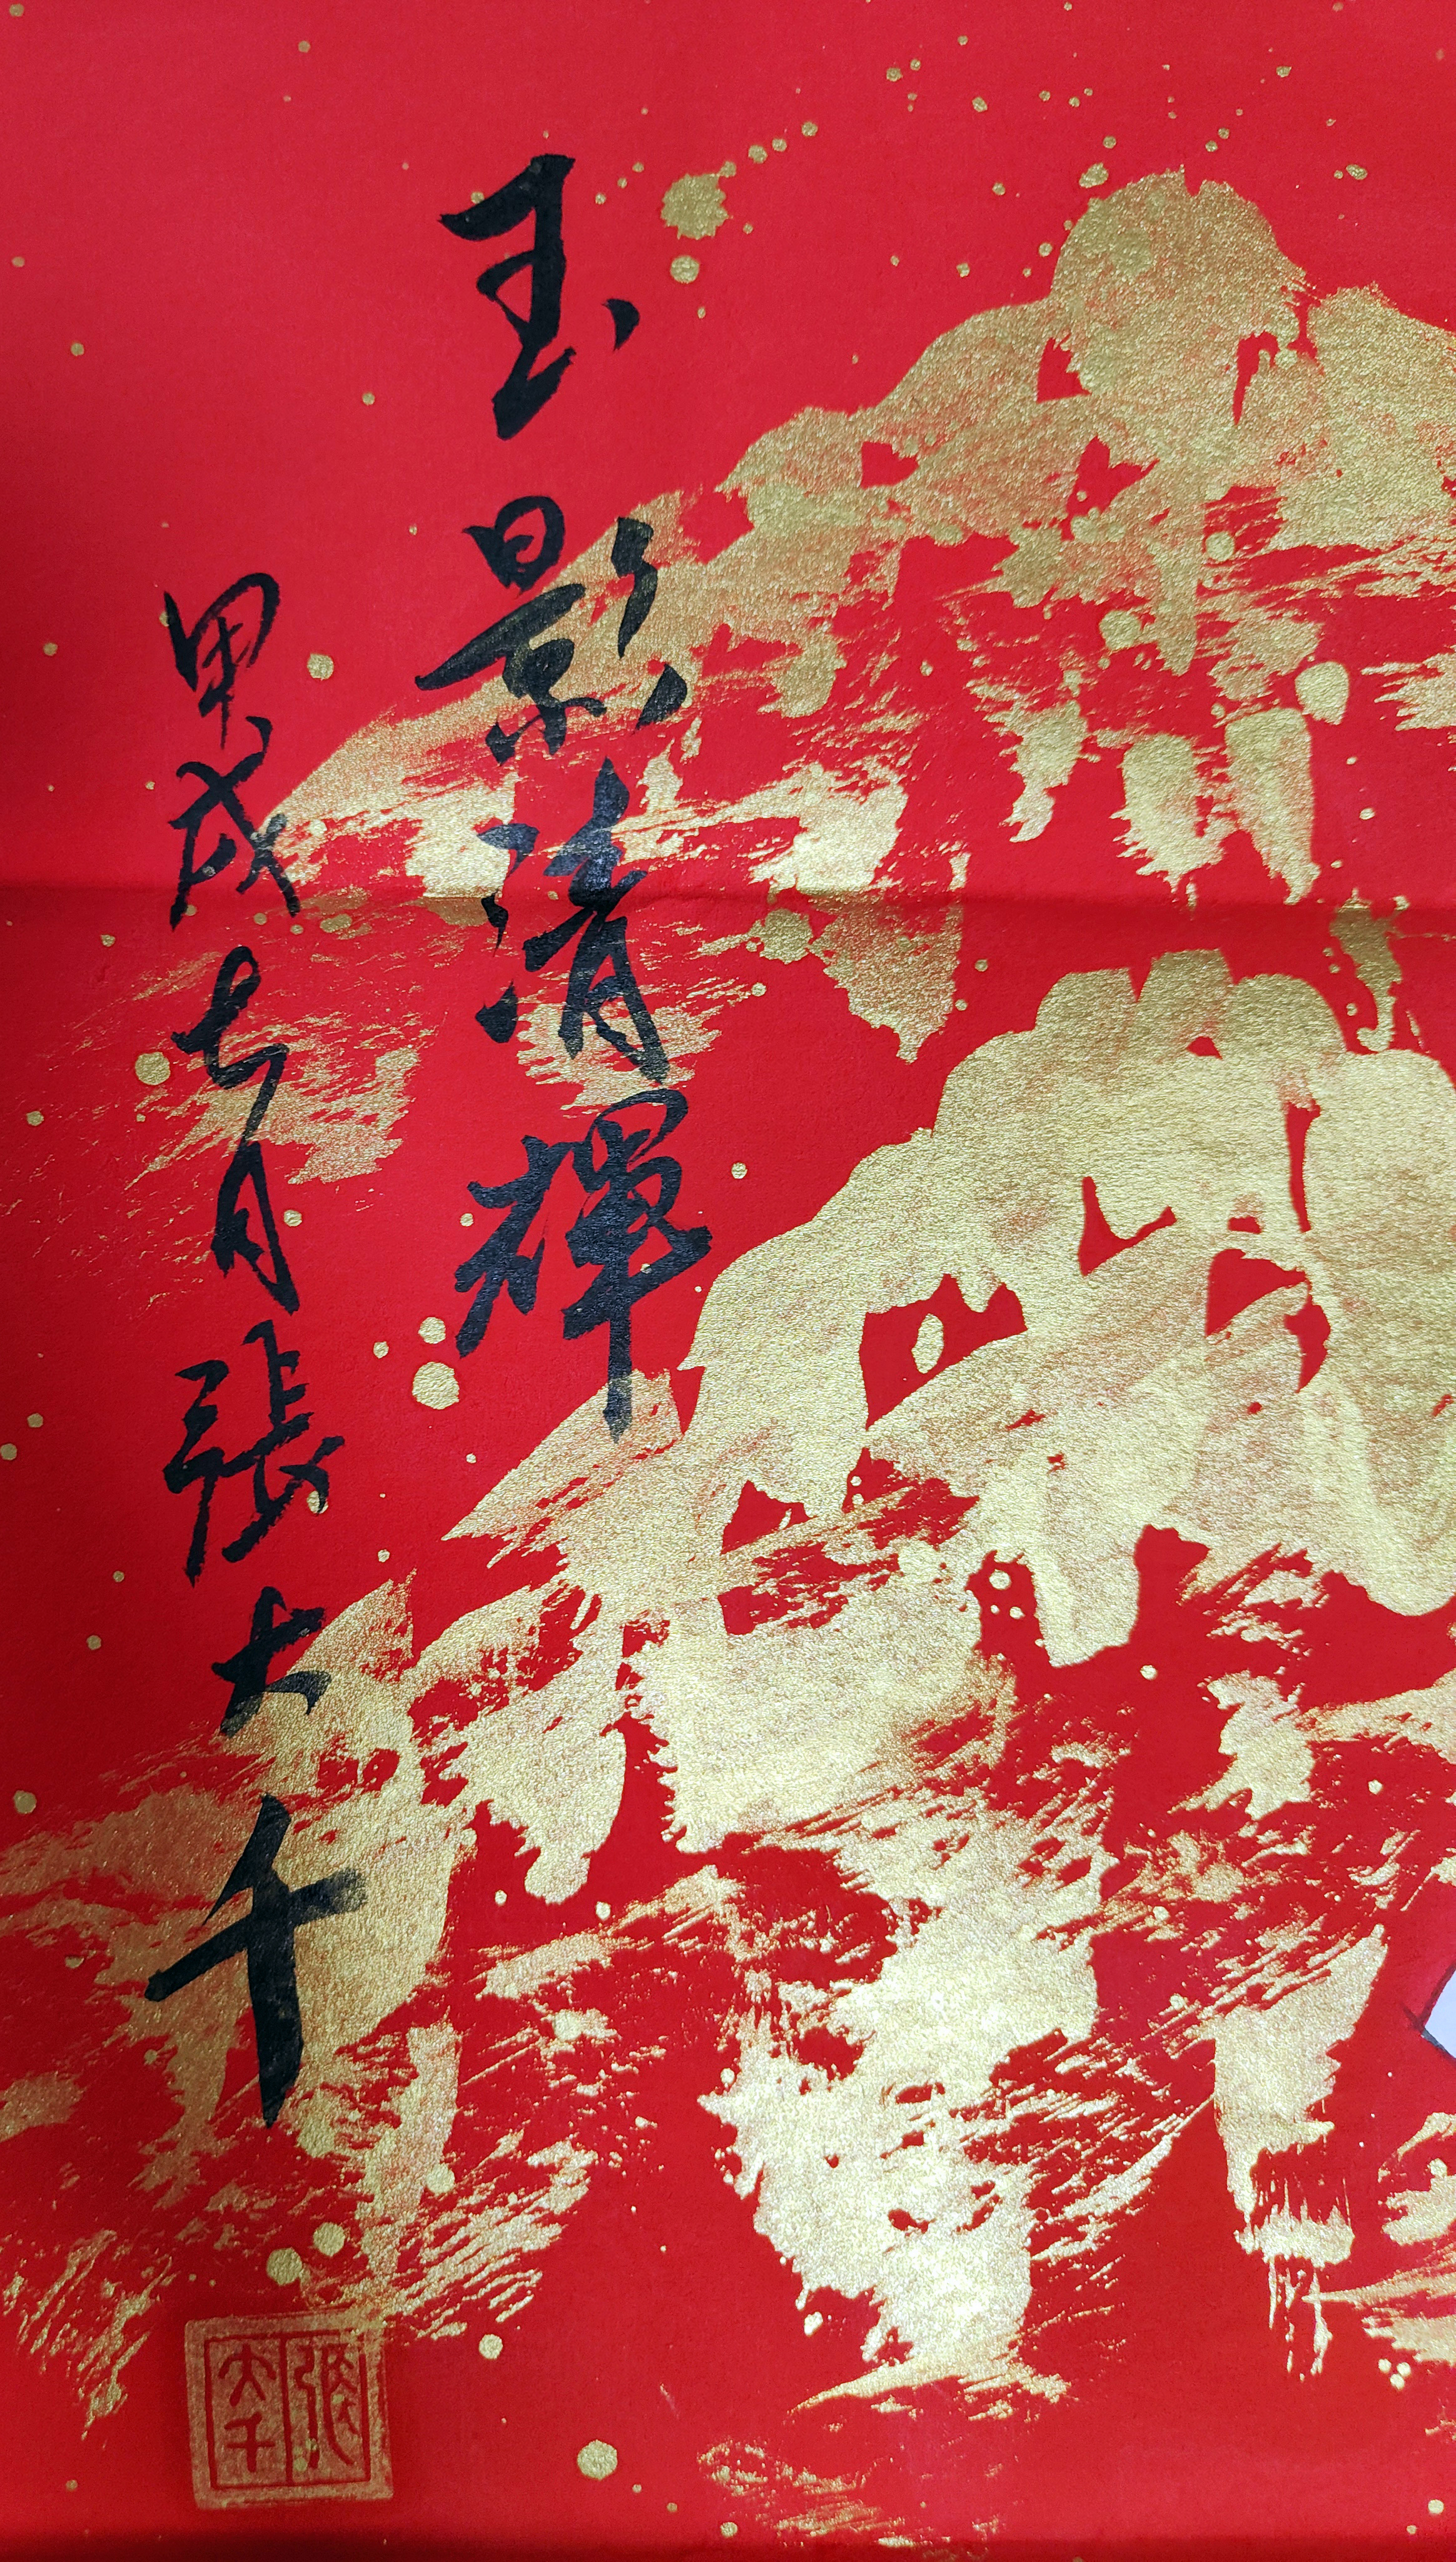 玉影清輝
甲戌七月張大千
張大千